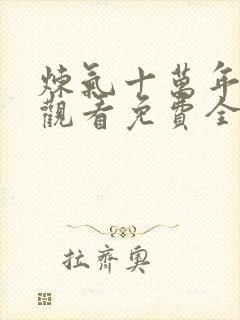 煉氣十萬年
觀看免費全
拉齊奧